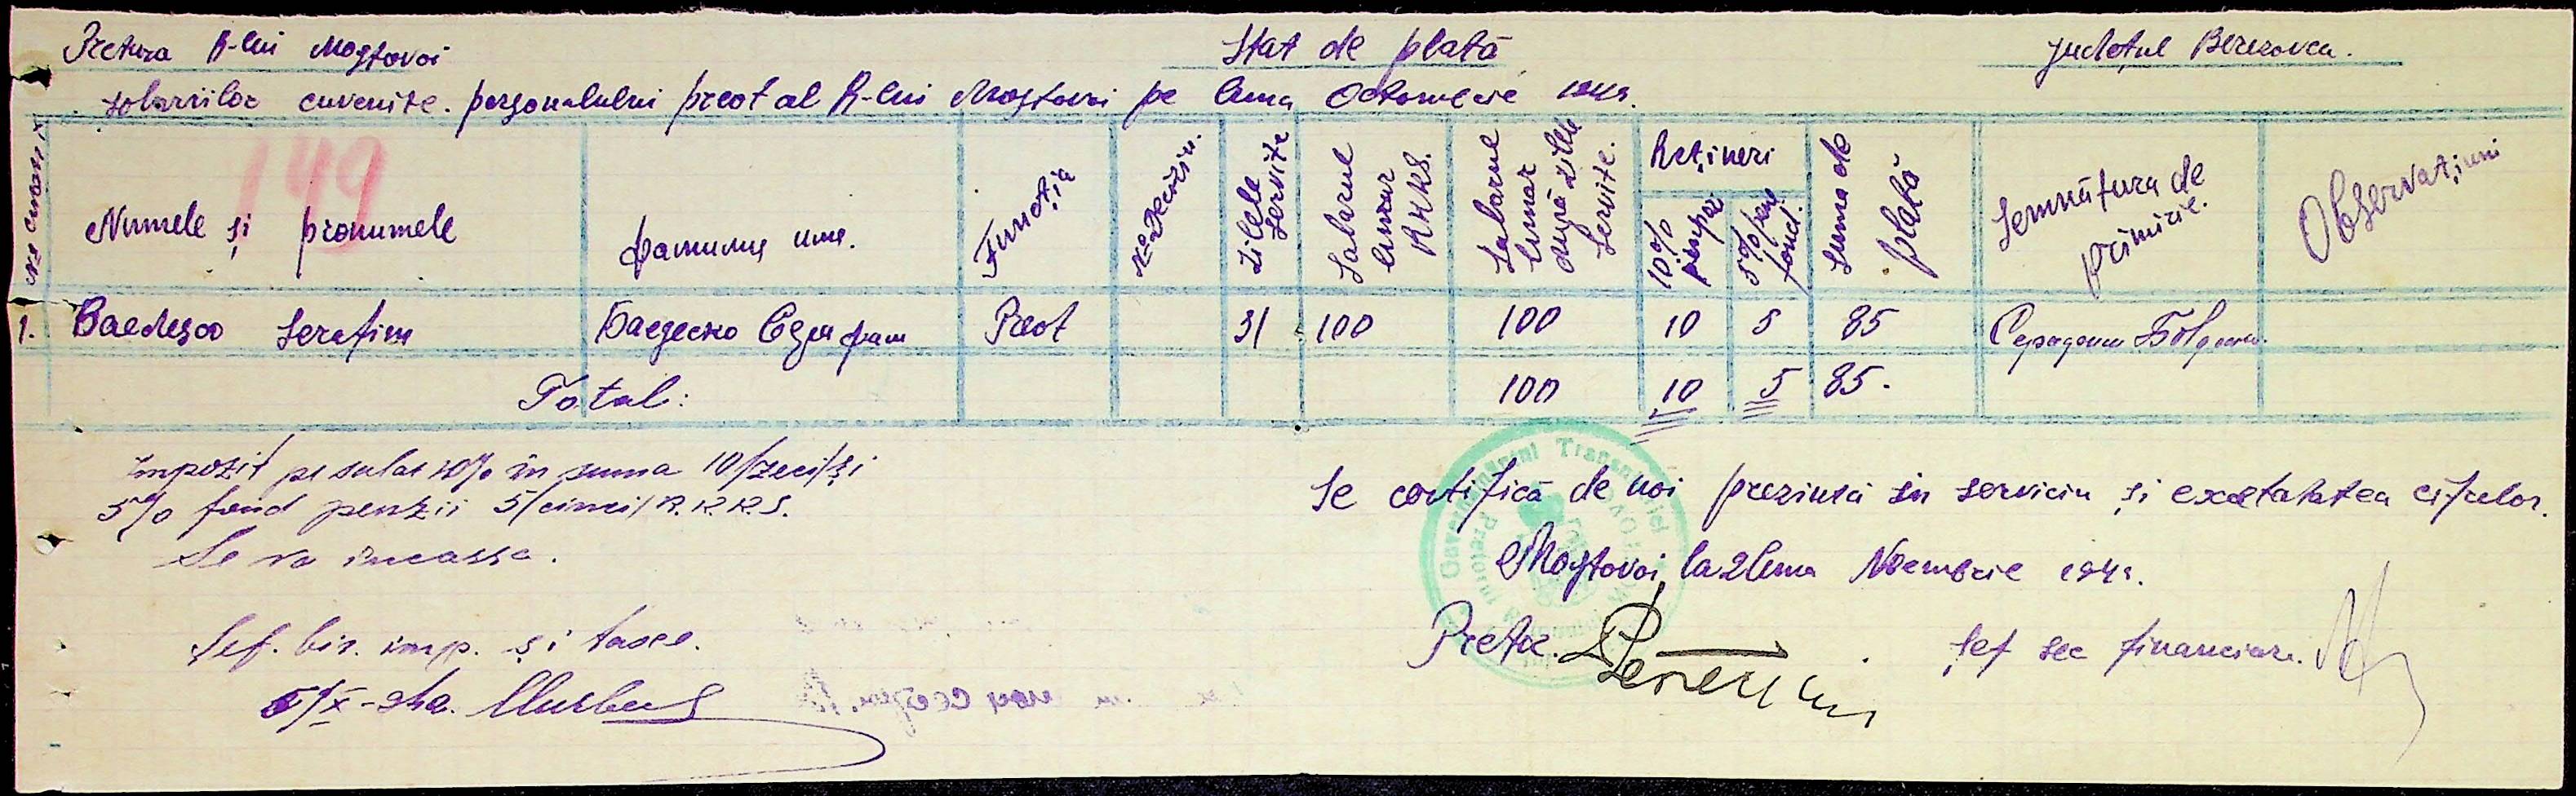 Pretura R-lui Mostovoi
Stat de plată
Județul Berezovca.
solariilor cuvenite. personalului preot al R-lui Mostovoi pe luna Octombrie
149
No Curent
Numele și pronumele
Фамилия имя.
Funcția
No Deciziu.
Zilele servite
Salarul lunar RKKS.
Salarul lunar după zille servite.
Rețineri
10%
5% pen fond.
Suma de plată
Semnătura de primire.
Observațiuni
1. Baedesco Serafim Баедеско Серафим Preot 31 100 100 10 5 85 Серафим
Total: 100 10 5 85.
Impozit pe salar 10% în suma 10/zeci/și
5% fond penzii 5/cinci/R.K.K.S.
Se va incassa.
Șef. bir. imp. și taxe.
Se certifică de noi prezința în serviciu și exactatatea cifrelor.
Mostovoi, la 2 luna Noembrie
Pretor.
Șef sec financiare.
Guvernământul Transnistriei